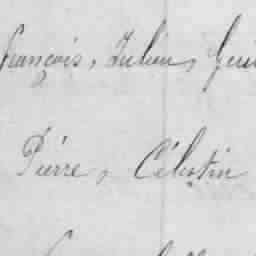 François, Julien,
Pierre, Célestin